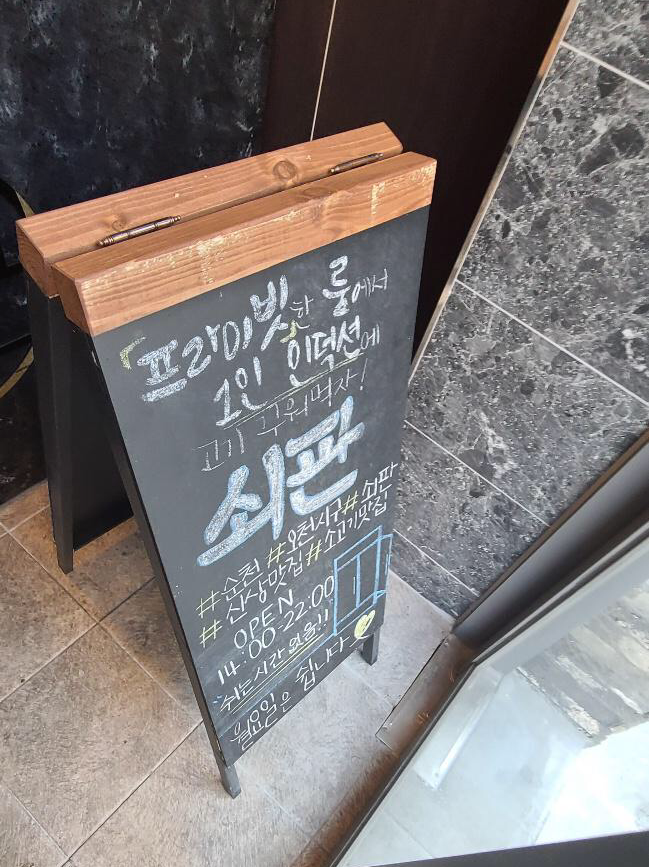 프라이빗한 룸에서
1인 인덕션에
고기 구워먹자!
쇠판
#순천 #오천지구 #쇠판
#신상맛집 #소고기맛집
OPEN
14:00-22:00
쉬는시간 없음!!
월요일은 쉽니다